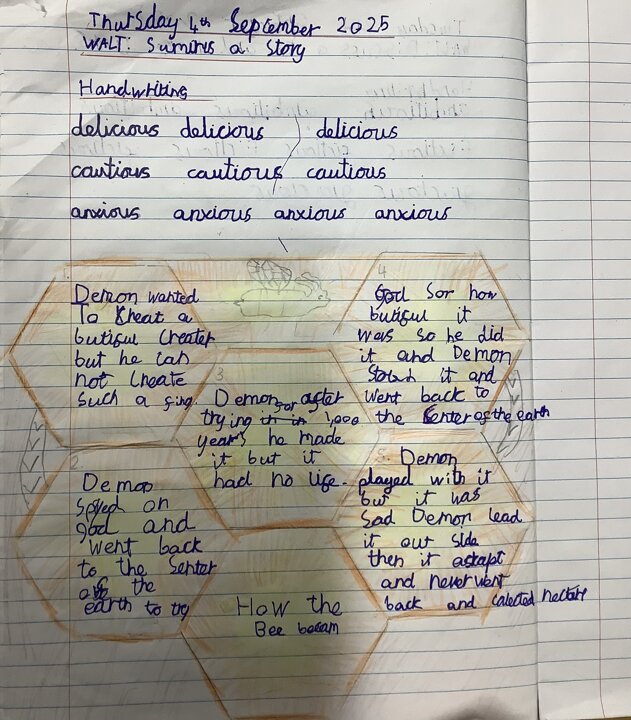 Thursday 4th September 2025
WALT: Sumirus a Story
Handwriting
delicious delicious delicious
cautious cautious cautious
anxious anxious anxious anxious
1.
Demon wanted
to Creat a
butiful Creater
but he can
not Create
Such a fing.
2.
Demon
Spyed on
god and
went back
to the Senter
of the
earth to try
3
Demon after
trying for 1,000
years he made
it but it
had no life.
4.
God Sor how
butiful it
was so he did
it and Demon
Stolen it and
went back to
the Center of the earth
5. Demon
played with it
but it was
Sad Demon lead
it out side
then it astapt
and never went
back and calected nectare
How the
Bee becam